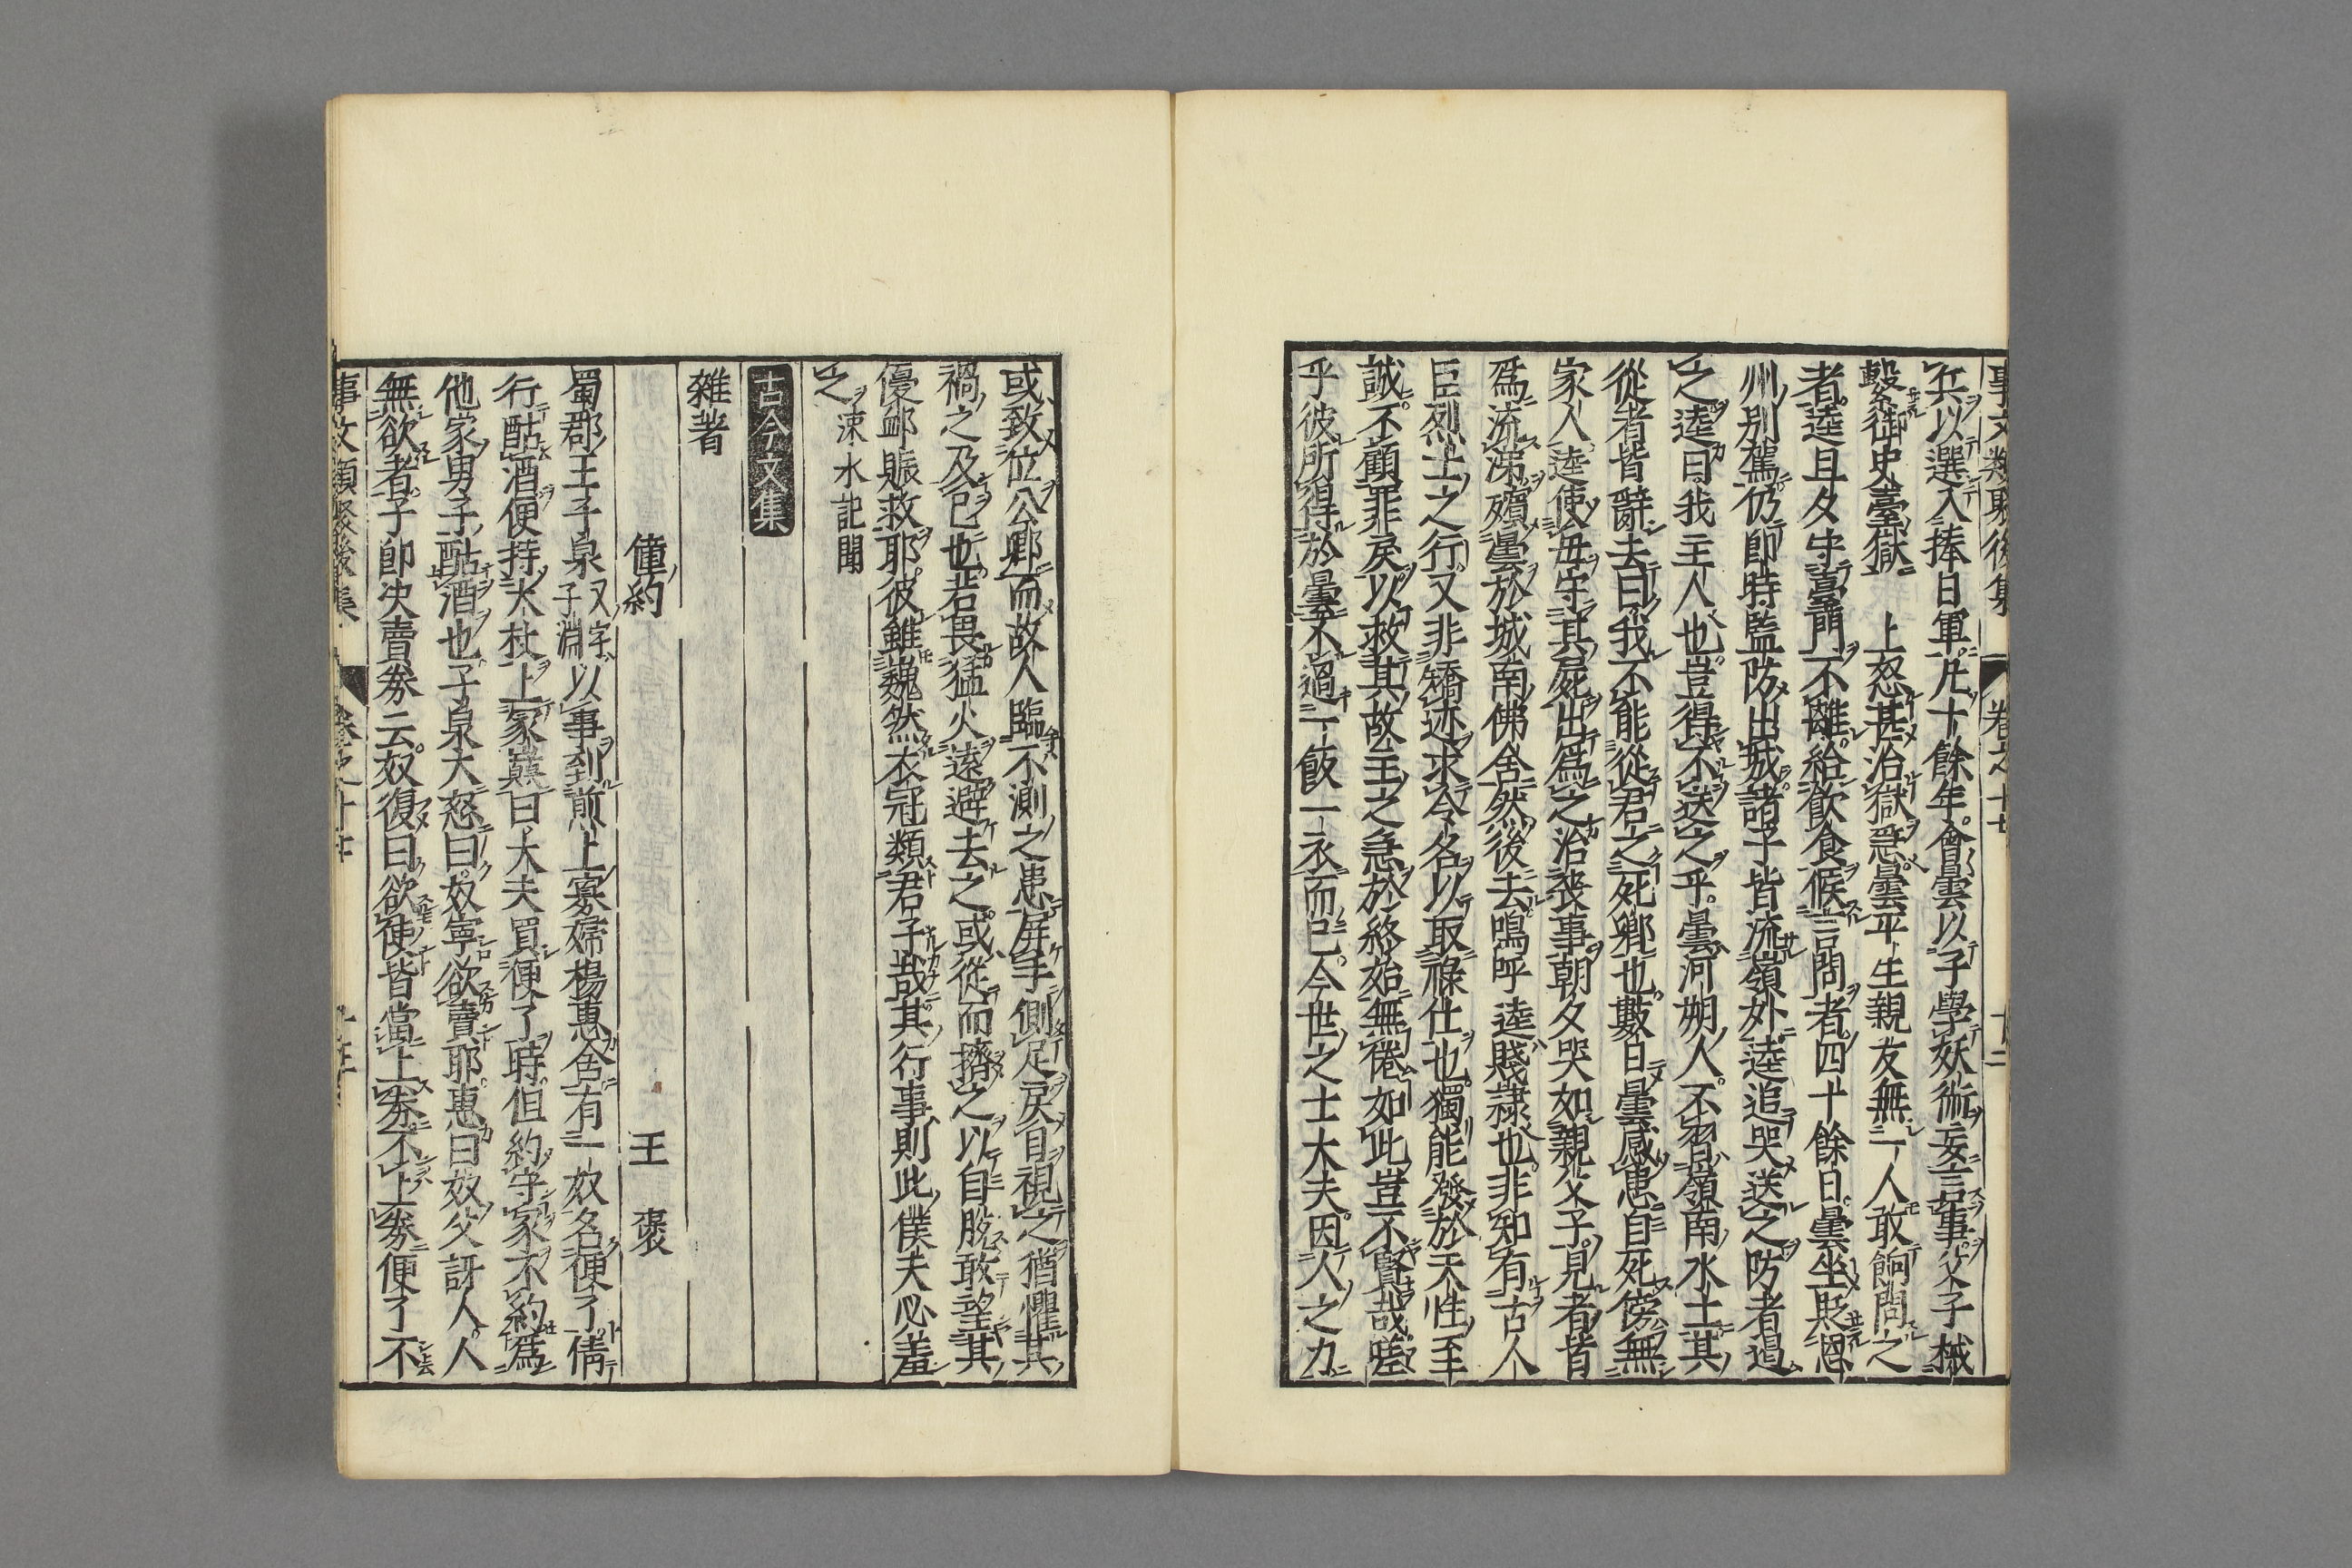 事文類聚後集 卷之十七
兵以選入捧日軍凡十餘年會曇以子學妖術妄言事父子械
繫御史臺獄 上怒甚治獄急曇平生親友無一人敢餉問之
者逵旦夕守臺門不離給飲食候言問者四十餘日曇坐貶恩
州別駕仍即時監防出城諸子皆流嶺外逵追哭送之防者遏
之逵曰我主人也豈得不送之乎曇河朔人不習嶺南水土其
從者皆辭去曰我不能從君之死鄉也數日曇感恚自死傍無
家人逵使母守其屍出爲之治喪事朝夕哭如親父子見者皆
爲流涕殯曇於城南佛舍然後去嗚呼逵賤隸也非知有古人
臣烈士之行又非矯迹求令名以取祿仕也獨能發於天性至
誠不顧罪戾以救其故主之急於終始無倦如此豈不賢哉嗟
乎彼所得於曇不過一飯一衣而已今世之士大夫因人之力
或致位公卿而故人臨不測之患屏手側足戾目視之猶懼其
禍之及己也若畏猛火遠避去之或從而擠之以自脫敢望其
優䘏賑救耶彼雖巍然衣冠類君子哉其行事則此僕夫必羞
之 涑水記聞
古今文集
雜著
僮約 王褒
蜀郡王子泉又字子淵以事到煎上寡婦楊惠舍有一奴名便了倩
行酤酒便持大杖上冢巔曰大夫買便了時但約守家不約爲
他家男子酤酒也子泉大怒曰奴寧欲賣耶惠曰奴父訝人人
無欲者子即決賣券云奴復曰欲使皆當上券不上券便了不
事文類聚後集 卷之十七